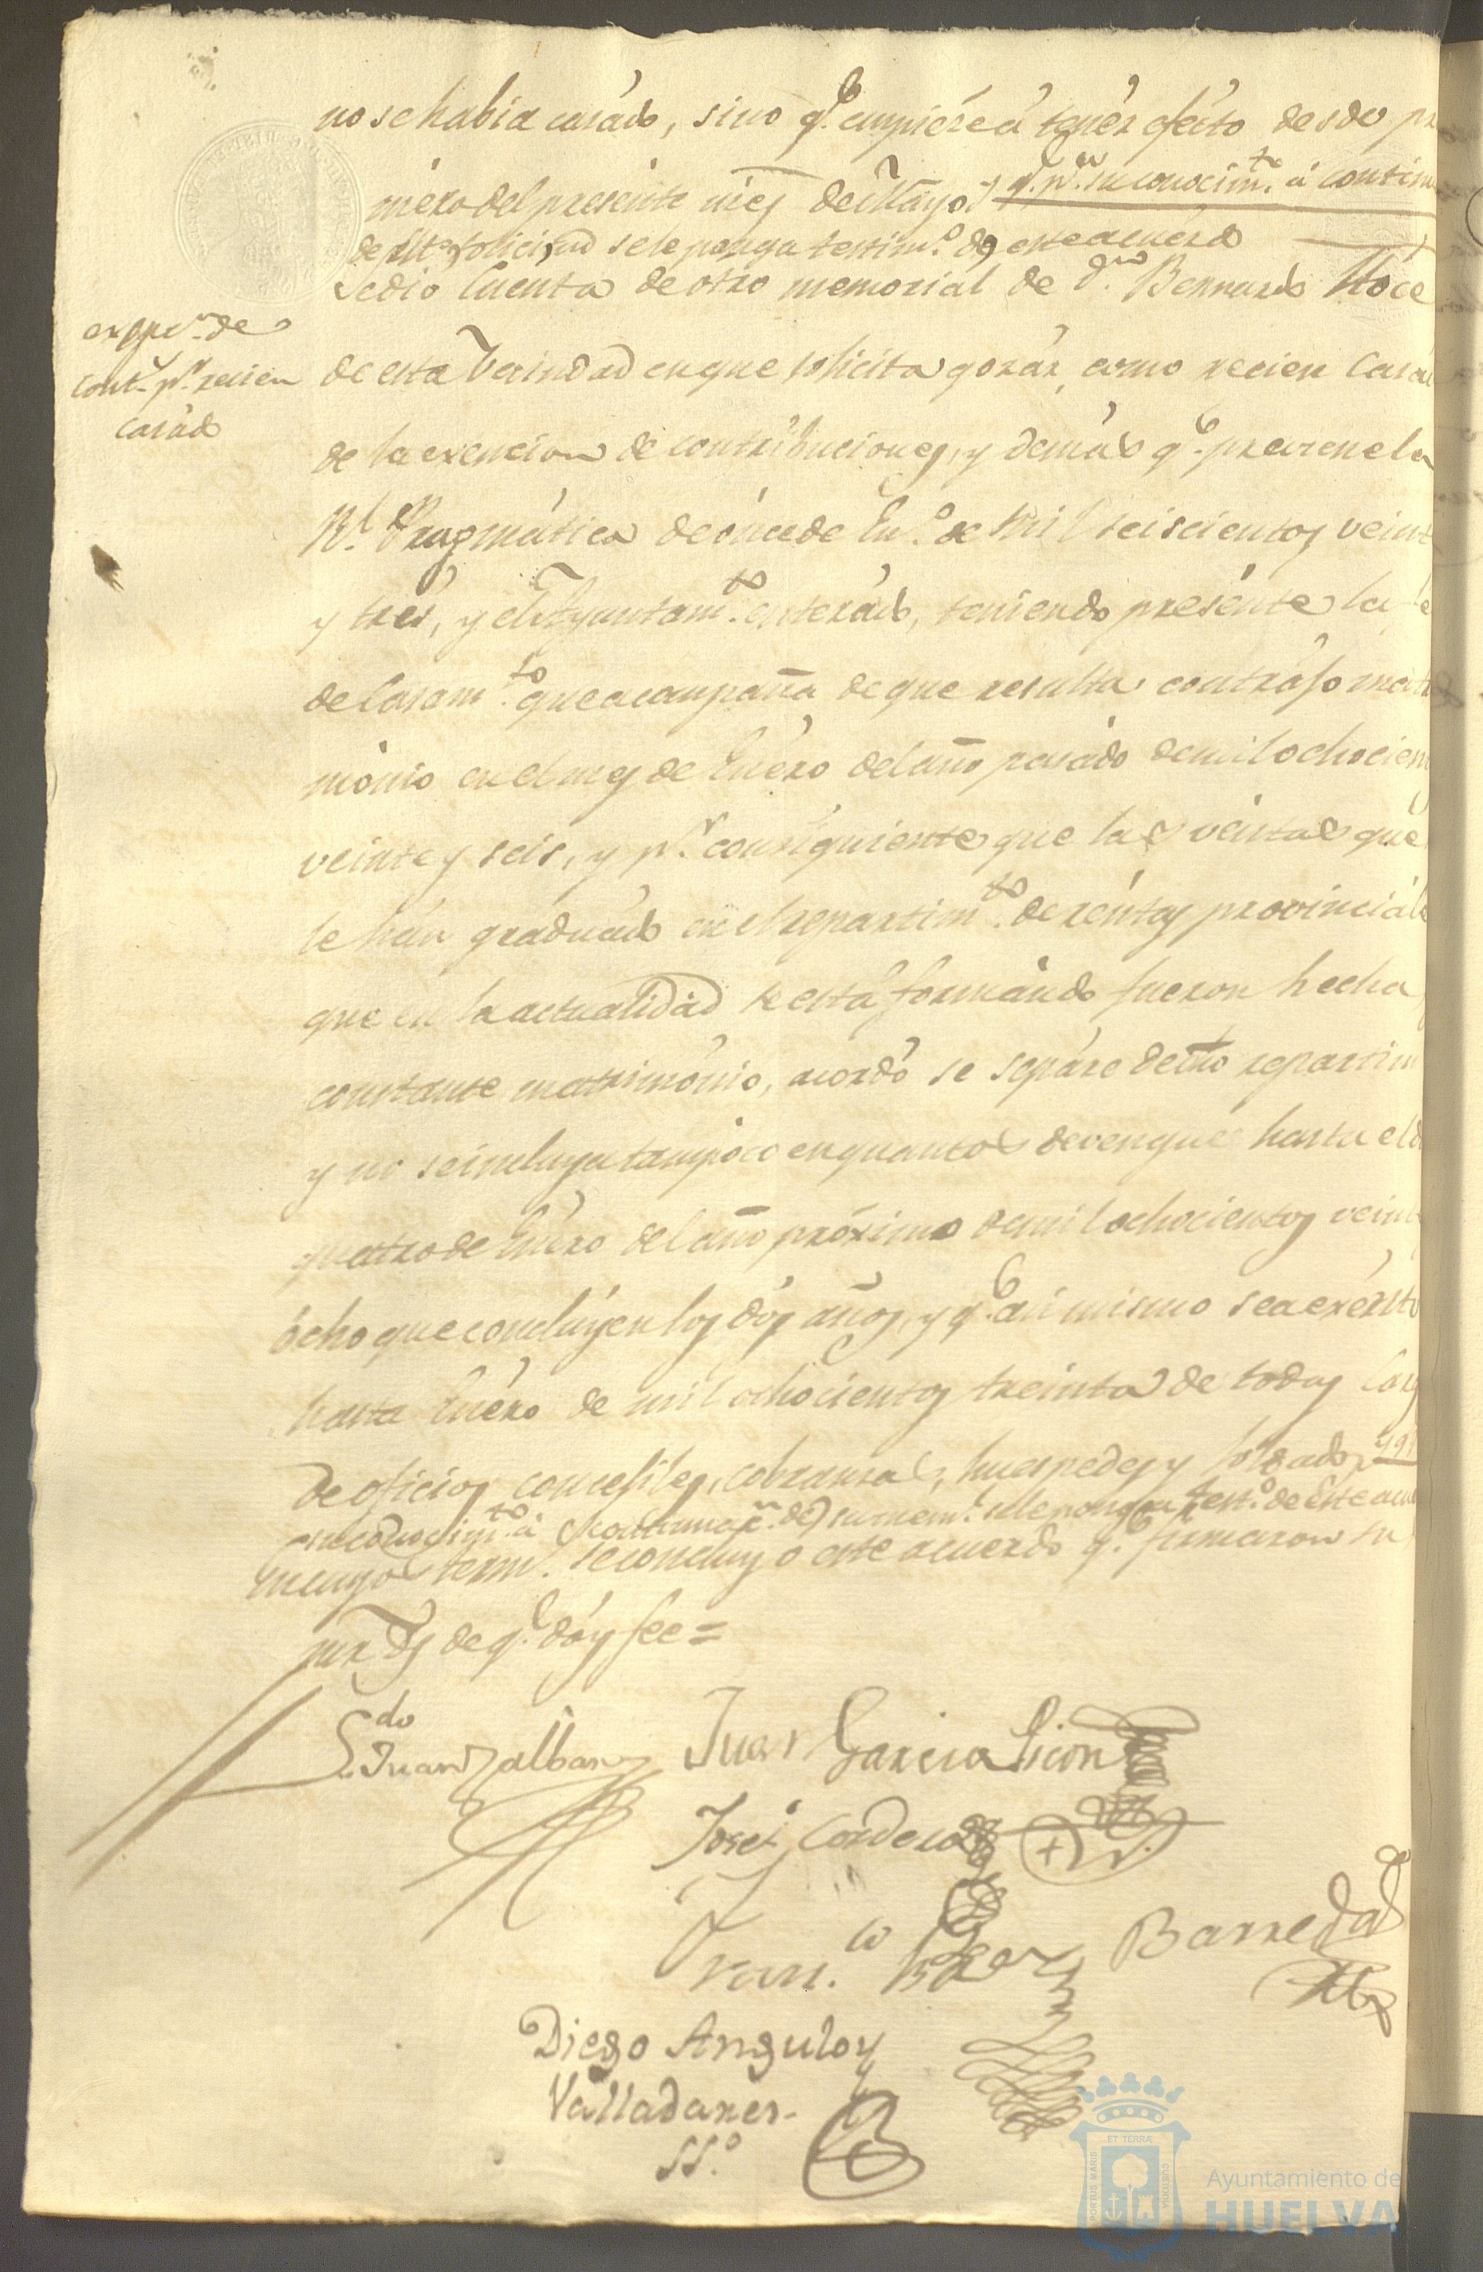 no se había casádo, sino q.e empiéze á tenér eféto desde pr
mero del presente mes de Mayo y q.e p.a su conocim.to á contin
de dha solicitud se le ponga testim.o de este acuérdo
exepn. de
cont.s p.r recien
casádo
se dió Cuenta de otro memorial de d.n Bernardo
de esta Vecindad en que solicita gozár, como recien Casád
de la exencion de contribuciones, y demás q.e previene la
R.l Pragmática de ónce de En.o de mil seiscientos veint
y trés, y el Ayuntam.to enterádo, teniendo presénte la fe
de Casam.to que acompaña de que resulta contrajo matr
mónio en el mes de Enéro del año pasádo de mil ochocien
veinte y seis, y p.r consiguiente que las véntas que
le hán graduádo en el repartim.to de réntas provinciáles
que en la actualidad se está formándo fueron hecha
constante matrimónio, acordó se sepáre de dho repartim
y no se incluya tampóco en quantos devengue hasta el d
quatro de Enéro del año próximo de mil ochocientos veint
ócho que conclúyen los dós años, y q.e así mismo sea exénto
hasta Enéro de mil ochocientos treinta de todas las
de oficios concejiles, cobranzas, huespedes y soldados y q.e
p.a su conocim.to á continuac.n de su mem.l se le ponga test.o de este acue
En cuyos term.s se concluyo este acuerdo q.e firmaron su
mrzds de q.e dóy fee =
L.do Juan Zalban
Juan Garcia Picon
José Cordero
Fran.co
Barreda
Diego Angulo y
Valladares
SS.o
PORTUS MARIS
ET TERRÆ
CUSTODIA
Ayuntamiento de
HUELVA